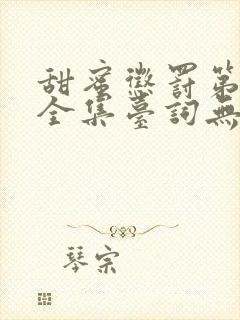 甜蜜懲罰第
全集臺詞無
琴宗